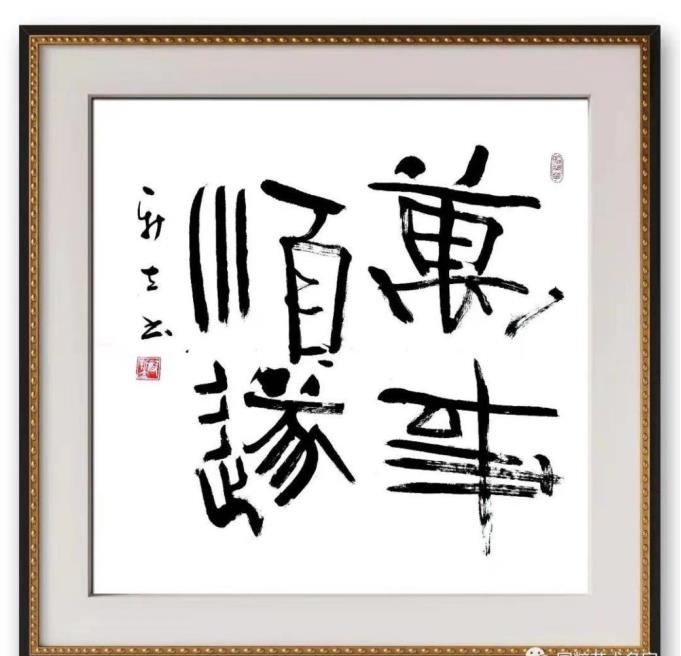 萬事
順遂